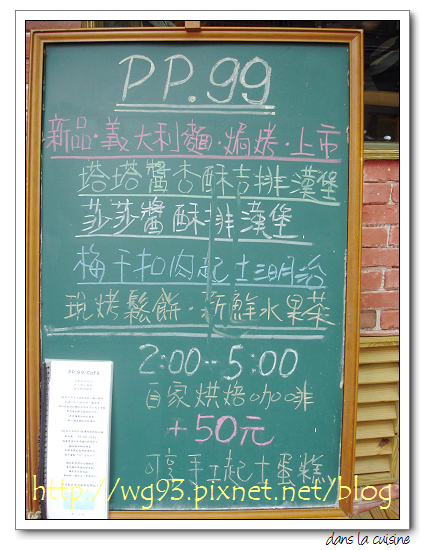 PP.99
新品·義大利麵·焗烤·上市
塔塔醬杏酥吉排漢堡
莎莎醬酥排漢堡
梅干扣肉起士三明治
現烤鬆餅·新鮮水果茶
2:00--5:00
自家烘焙咖啡
+50元
可享手工起士蛋糕
PP.99 Café
http://wg93.pixnet.net/blog
dans la cuisine